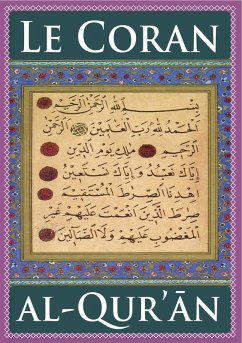 LE CORAN
بِسْمِ اللهِ الرَّحْمٰنِ الرَّحِيمِ
اَلْحَمْدُ لِلّٰهِ رَبِّ الْعَالَمِينَ الرَّحْمٰنِ
الرَّحِيمِ مٰلِكِ يَوْمِ الدِّينِ
اِيَّاكَ نَعْبُدُ وَاِيَّاكَ نَسْتَعِينُ
اِهْدِنَا الصِّرَاطَ الْمُسْتَقِيمَ
صِرَاطَ الَّذِينَ اَنْعَمْتَ عَلَيْهِمْ غَيْرِ
الْمَغْضُوبِ عَلَيْهِمْ وَلَا الضَّالِّينَ
AL-QUR’ĀN